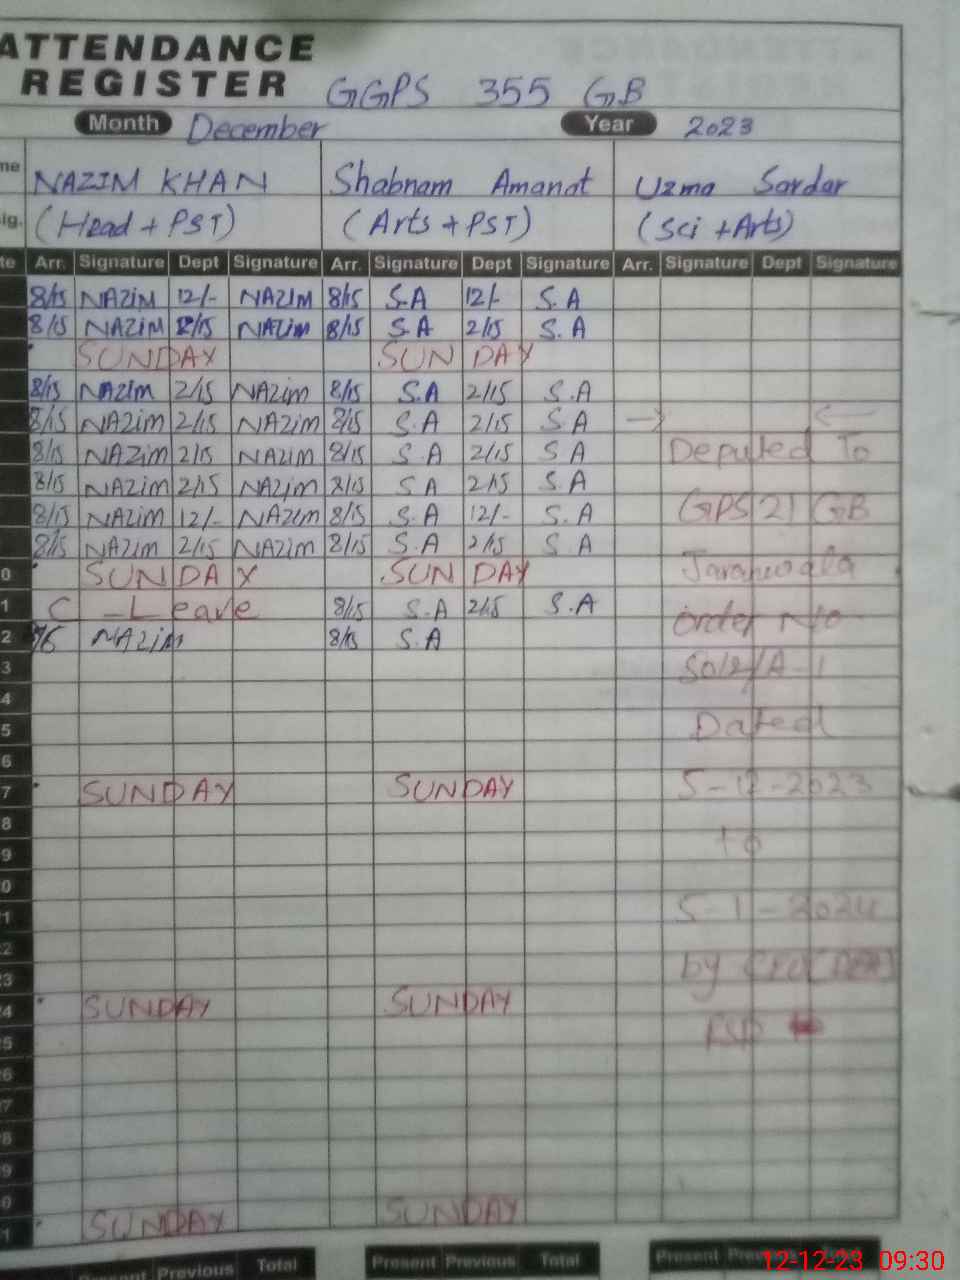 ATTENDANCE
REGISTER GGPS 355 GB
Month December Year 2023
me NAZIM KHAN Shabnam Amanat Uzma Sardar
ig. (Head + PST) (Arts + PST) (Sci + Arts)
te Arr. Signature Dept Signature Arr. Signature Dept Signature Arr. Signature Dept Signature
8/15 NAZIM 12/- NAZIM 8/15 S.A 12/- S.A
8/15 NAZIM 2/15 NAZIM 8/15 S.A 2/15 S.A
SUNDAY SUNDAY
8/15 NAZIM 2/15 NAZIM 8/15 S.A 2/15 S.A
8/15 NAZIM 2/15 NAZIM 8/15 S.A 2/15 S.A → ←
8/15 NAZIM 2/15 NAZIM 8/15 S.A 2/15 S A Deputed To
8/15 NAZIM 2/15 NAZIM 8/15 S A 2/15 S.A
8/15 NAZIM 12/- NAZIM 8/15 S.A 12/- S.A GPS 21 GB
8/15 NAZIM 2/15 NAZIM 8/15 S.A 2/15 S A
0 SUNDAY SUNDAY Jaranwala
1 C - Leave 8/15 S.A 2/15 S.A order No
2 NAZIM 8/15 S.A
3
4
5 Dated
6
7 SUNDAY SUNDAY 5-12-2023
8
9 to
0
1 5-1-2024
2
3 by CEO (DEA)
4 SUNDAY SUNDAY FSD
5
6
7
8
9
0 SUNDAY
1 SUNDAY
Present Previous Total Present Previous Total Present Previous
12-12-23 09:30